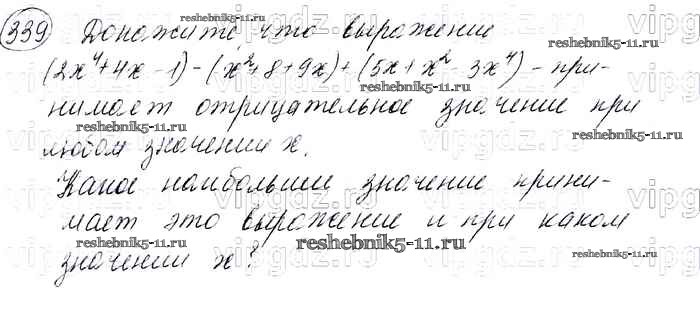 339 Докажите, что выражение
(2x⁴+4x-1)-(x²+8+9x)+(5x+x²-3x⁴) - при-
нимает отрицательное значение при
любом значении x.
Какое наибольшее значение прини-
мает это выражение и при каком
значении x?
reshebnik5-11.ru
reshebnik5-11.ru
reshebnik5-11.ru
reshebnik5-11.ru
reshebnik5-11.ru
reshebnik5-11.ru
reshebnik5-11.ru
reshebnik5-11.ru
vipgdz.ru